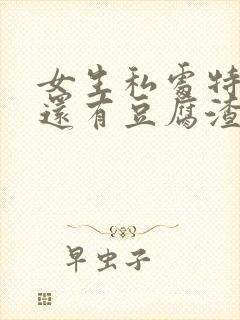 女生私處特
還有豆腐渣
早虫子